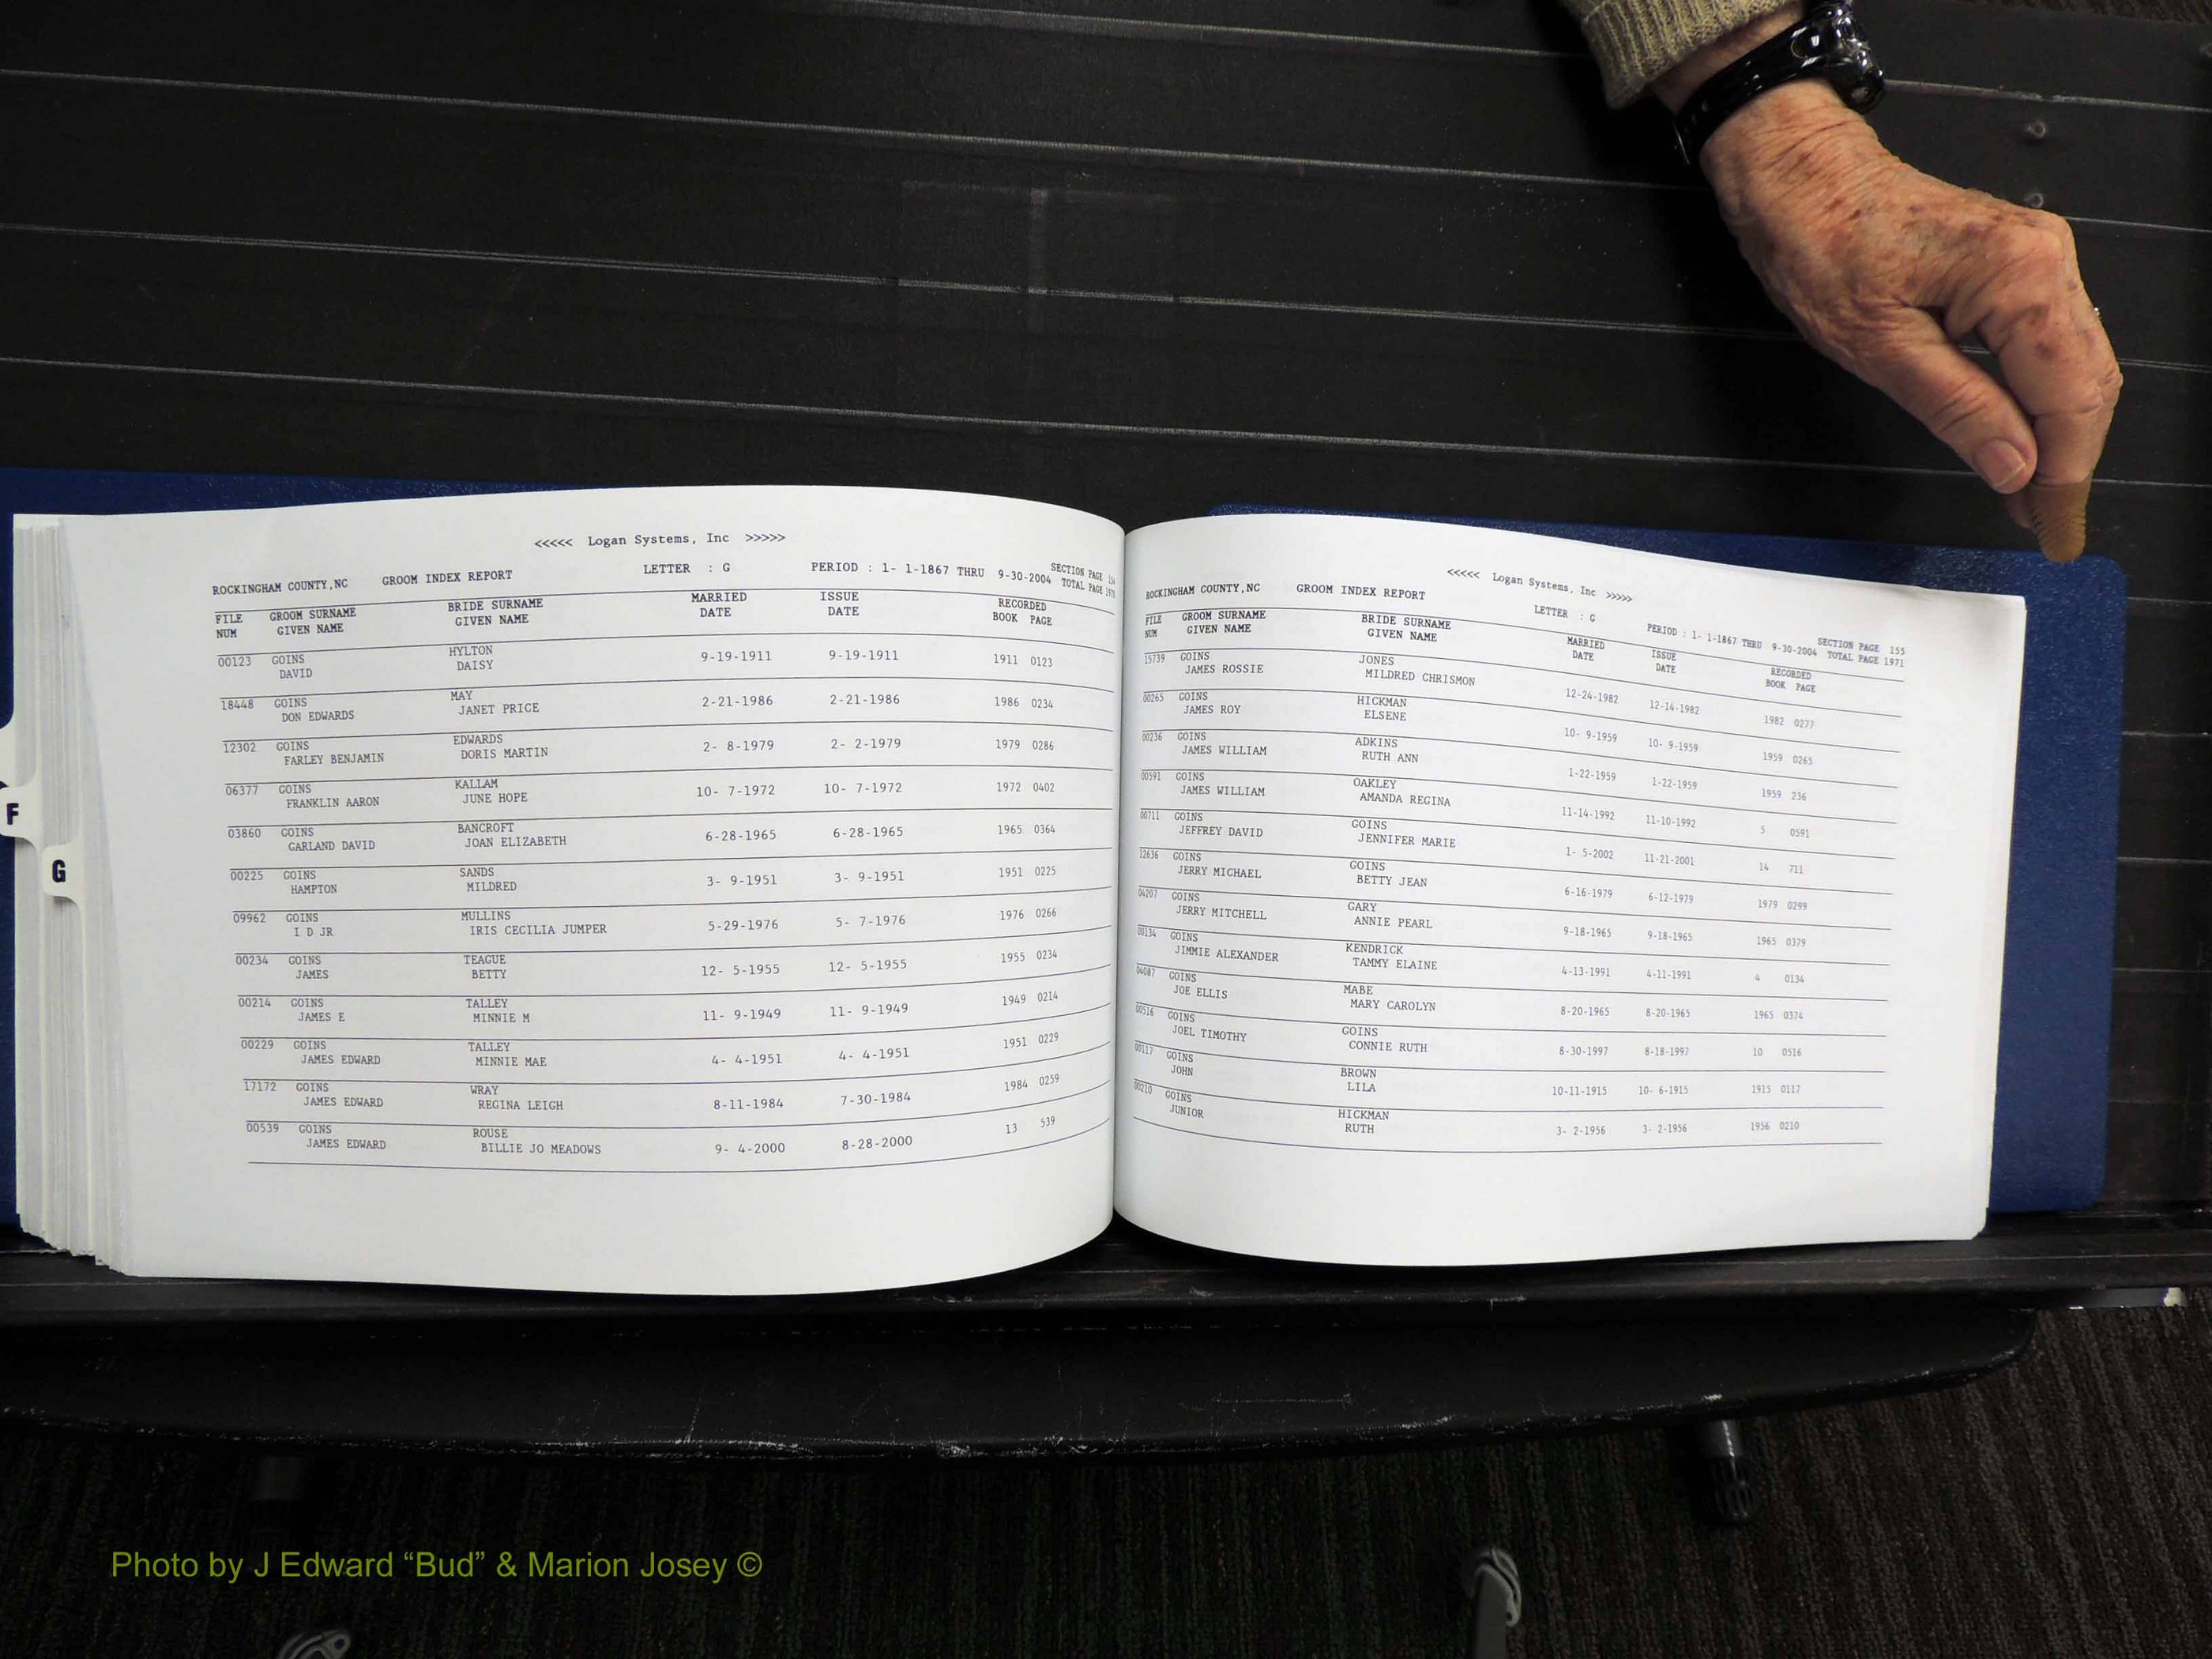 <<<<< Logan Systems, Inc >>>>>
ROCKINGHAM COUNTY,NC GROOM INDEX REPORT LETTER : G PERIOD : 1- 1-1867 THRU 9-30-2004 SECTION PAGE 154
TOTAL PAGE 1970
FILE GROOM SURNAME BRIDE SURNAME MARRIED ISSUE RECORDED
NUM GIVEN NAME GIVEN NAME DATE DATE BOOK PAGE
00123 GOINS HYLTON 9-19-1911 9-19-1911 1911 0123
DAVID DAISY
18448 GOINS MAY 2-21-1986 2-21-1986 1986 0234
DON EDWARDS JANET PRICE
12302 GOINS EDWARDS 2- 8-1979 2- 2-1979 1979 0286
FARLEY BENJAMIN DORIS MARTIN
06377 GOINS KALLAM 10- 7-1972 10- 7-1972 1972 0402
FRANKLIN AARON JUNE HOPE
03860 GOINS BANCROFT 6-28-1965 6-28-1965 1965 0364
GARLAND DAVID JOAN ELIZABETH
00225 GOINS SANDS 3- 9-1951 3- 9-1951 1951 0225
HAMPTON MILDRED
09962 GOINS MULLINS 5-29-1976 5- 7-1976 1976 0266
I D JR IRIS CECILIA JUMPER
00234 GOINS TEAGUE 12- 5-1955 12- 5-1955 1955 0234
JAMES BETTY
00214 GOINS TALLEY 11- 9-1949 11- 9-1949 1949 0214
JAMES E MINNIE M
00229 GOINS TALLEY 4- 4-1951 4- 4-1951 1951 0229
JAMES EDWARD MINNIE MAE
17172 GOINS WRAY 8-11-1984 7-30-1984 1984 0259
JAMES EDWARD REGINA LEIGH
00539 GOINS ROUSE 9- 4-2000 8-28-2000 13 539
JAMES EDWARD BILLIE JO MEADOWS
F
G
<<<<< Logan Systems, Inc >>>>>
ROCKINGHAM COUNTY,NC GROOM INDEX REPORT LETTER : G PERIOD : 1- 1-1867 THRU 9-30-2004 SECTION PAGE 155
TOTAL PAGE 1971
FILE GROOM SURNAME BRIDE SURNAME MARRIED ISSUE RECORDED
NUM GIVEN NAME GIVEN NAME DATE DATE BOOK PAGE
15739 GOINS JONES 12-24-1982 12-14-1982 1982 0277
JAMES ROSSIE MILDRED CHRISMON
00265 GOINS HICKMAN 10- 9-1959 10- 9-1959 1959 0265
JAMES ROY ELSENE
00236 GOINS ADKINS 1-22-1959 1-22-1959 1959 236
JAMES WILLIAM RUTH ANN
00591 GOINS OAKLEY 11-14-1992 11-10-1992 5 0591
JAMES WILLIAM AMANDA REGINA
00711 GOINS GOINS 1- 5-2002 11-21-2001 14 711
JEFFREY DAVID JENNIFER MARIE
12636 GOINS GOINS 6-16-1979 6-12-1979 1979 0299
JERRY MICHAEL BETTY JEAN
04207 GOINS GARY 9-18-1965 9-18-1965 1965 0379
JERRY MITCHELL ANNIE PEARL
00134 GOINS KENDRICK 4-13-1991 4-11-1991 4 0134
JIMMIE ALEXANDER TAMMY ELAINE
04087 GOINS MABE 8-20-1965 8-20-1965 1965 0374
JOE ELLIS MARY CAROLYN
00516 GOINS GOINS 8-30-1997 8-18-1997 10 0516
JOEL TIMOTHY CONNIE RUTH
00117 GOINS BROWN 10-11-1915 10- 6-1915 1915 0117
JOHN LILA
00210 GOINS HICKMAN 3- 2-1956 3- 2-1956 1956 0210
JUNIOR RUTH
Photo by J Edward “Bud” & Marion Josey ©